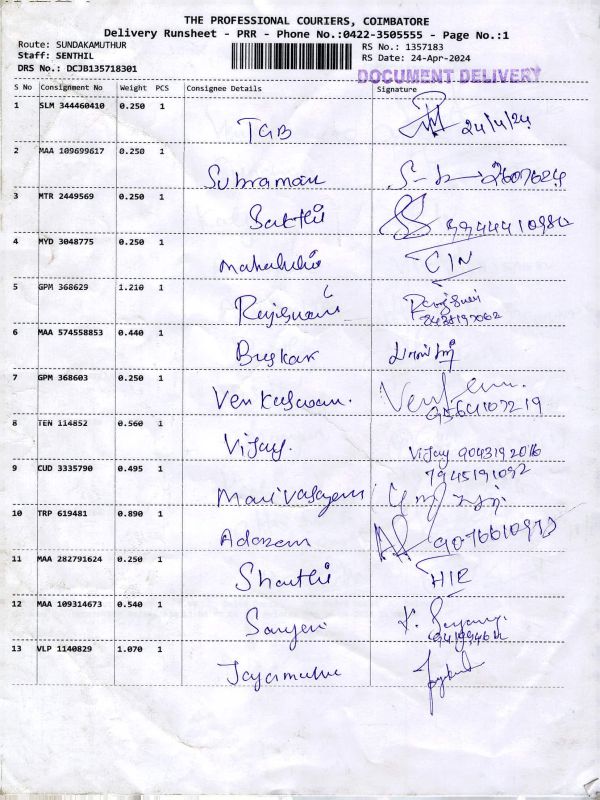 THE PROFESSIONAL COURIERS, COIMBATORE
Delivery Runsheet - PRR - Phone No.:0422-3505555 - Page No.:1
Route: SUNDAKAMUTHUR RS No.: 1357183
Staff: SENTHIL RS Date: 24-Apr-2024
DRS No.: DCJB135718301 DOCUMENT DELIVERY
S No Consignment No Weight PCS Consignee Details Signature
1 SLM 344460410 0.250 1 TGB 24/4/24
2 MAA 109699617 0.250 1 Subraman
3 MTR 2449569 0.250 1 Sakthi
4 MYD 3048775 0.250 1 CIN
5 GPM 368629 1.210 1
6 MAA 574558853 0.440 1 Buskar
7 GPM 368603 0.250 1 9564107219
8 TEN 114852 0.560 1 Vijay. Vijay 9043192016
9 CUD 3335790 0.495 1 7945191092
10 TRP 619481 0.890 1
11 MAA 282791624 0.250 1 Shanthi
12 MAA 109314673 0.540 1
13 VLP 1140829 1.070 1